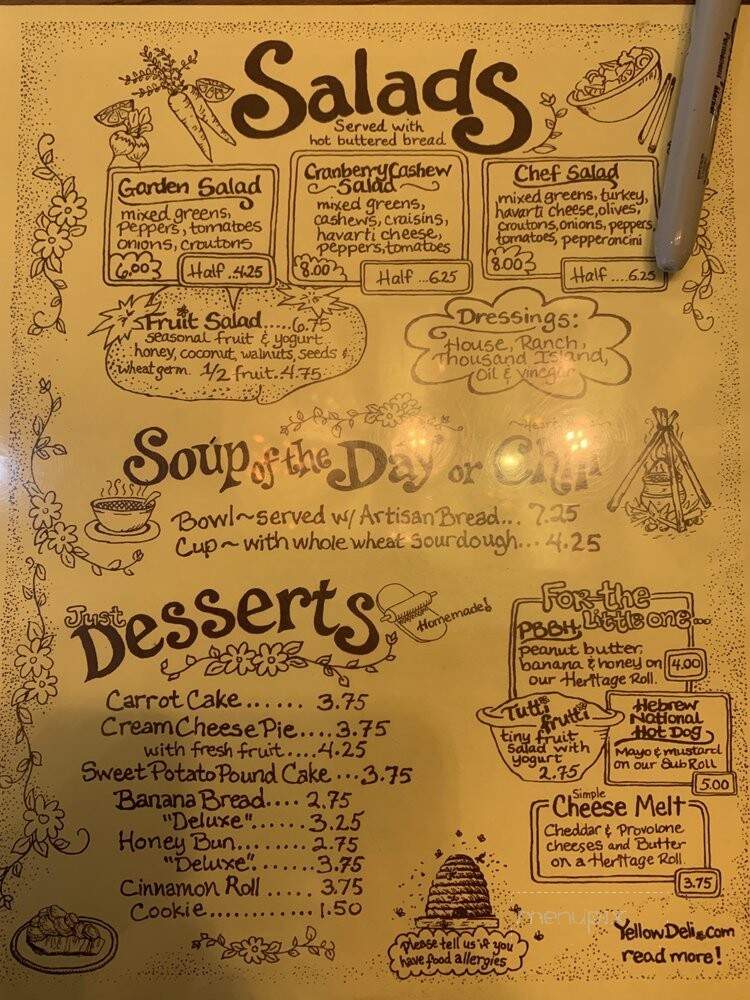 Salads
Served with
hot buttered bread
Garden Salad
mixed greens,
peppers, tomatoes
onions, croutons
6.00
Half .4.25
Cranberry Cashew
Salad
mixed greens,
cashews, craisins,
havarti cheese,
peppers, tomatoes
8.00
Half ...6.25
Chef Salad
mixed greens, turkey,
havarti cheese, olives,
croutons, onions, peppers,
tomatoes, pepperoncini
8.00
Half ....6.25
Fruit Salad.....6.75
seasonal fruit & yogurt
honey, coconut, walnuts, seeds &
wheat germ. 1/2 fruit.4.75
Dressings:
House, Ranch,
Thousand Island,
Oil & Vinegar
Soup of the Day or
Bowl~served w/ Artisan Bread... 7.25
Cup~ with whole wheat sourdough... 4.25
Just
Desserts
Homemade!
Carrot Cake...... 3.75
Cream Cheese Pie....3.75
with fresh fruit....4.25
Sweet Potato Pound Cake...3.75
Banana Bread.... 2.75
"Deluxe"...... 3.25
Honey Bun........ 2.75
"Deluxe"....... 3.75
Cinnamon Roll ..... 3.75
Cookie............ 1.50
For the
Little one...
PBBH
peanut butter,
banana & honey on
our Heritage Roll.
4.00
Tutti
frutti
tiny fruit
salad with
yogurt
2.75
Hebrew
National
Hot Dog
Mayo & mustard
on our Sub Roll
5.00
Simple
Cheese Melt
Cheddar & Provolone
cheeses and Butter
on a Heritage Roll.
3.75
Please tell us if you
have food allergies
YellowDeli.com
read more!